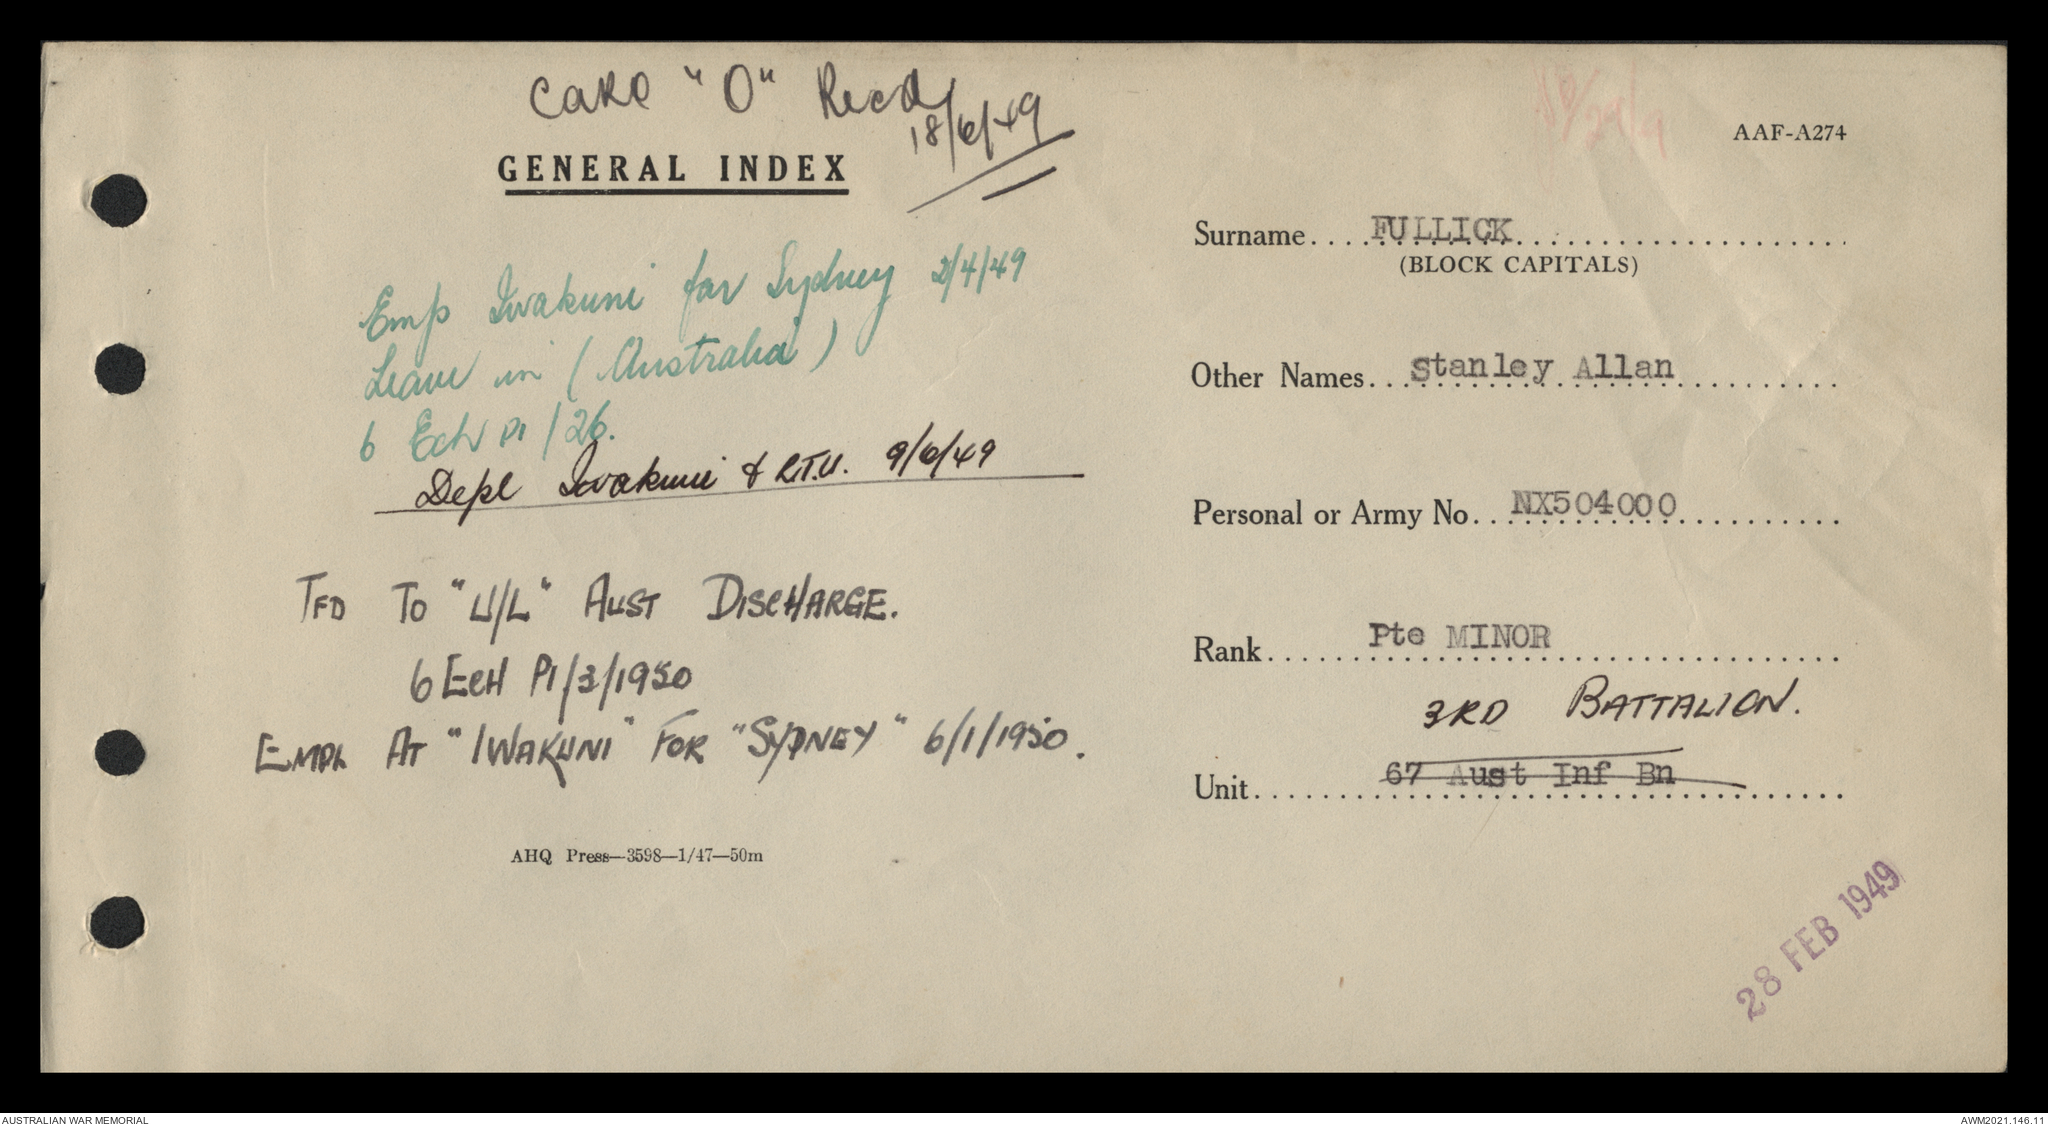 Card "O" Recd
18/6/49
GENERAL INDEX
Emp Iwakuni for Sydney 2/4/49
Leave in (Australia)
6 Ech PI/26.
Depl Iwakuni & R.T.U. 9/6/49
TFD TO "U/L" AUST DISCHARGE.
6 ECH PI/3/1950
EMPL AT "IWAKUNI" FOR "SYDNEY" 6/1/1950.
AHQ Press—3598—1/47—50m
AAF-A274
Surname FULLICK
(BLOCK CAPITALS)
Other Names Stanley Allan
Personal or Army No. NX504000
Rank Pte MINOR
3RD BATTALION.
Unit 67 Aust Inf Bn
28 FEB 1949
AUSTRALIAN WAR MEMORIAL
AWM2021.146.11